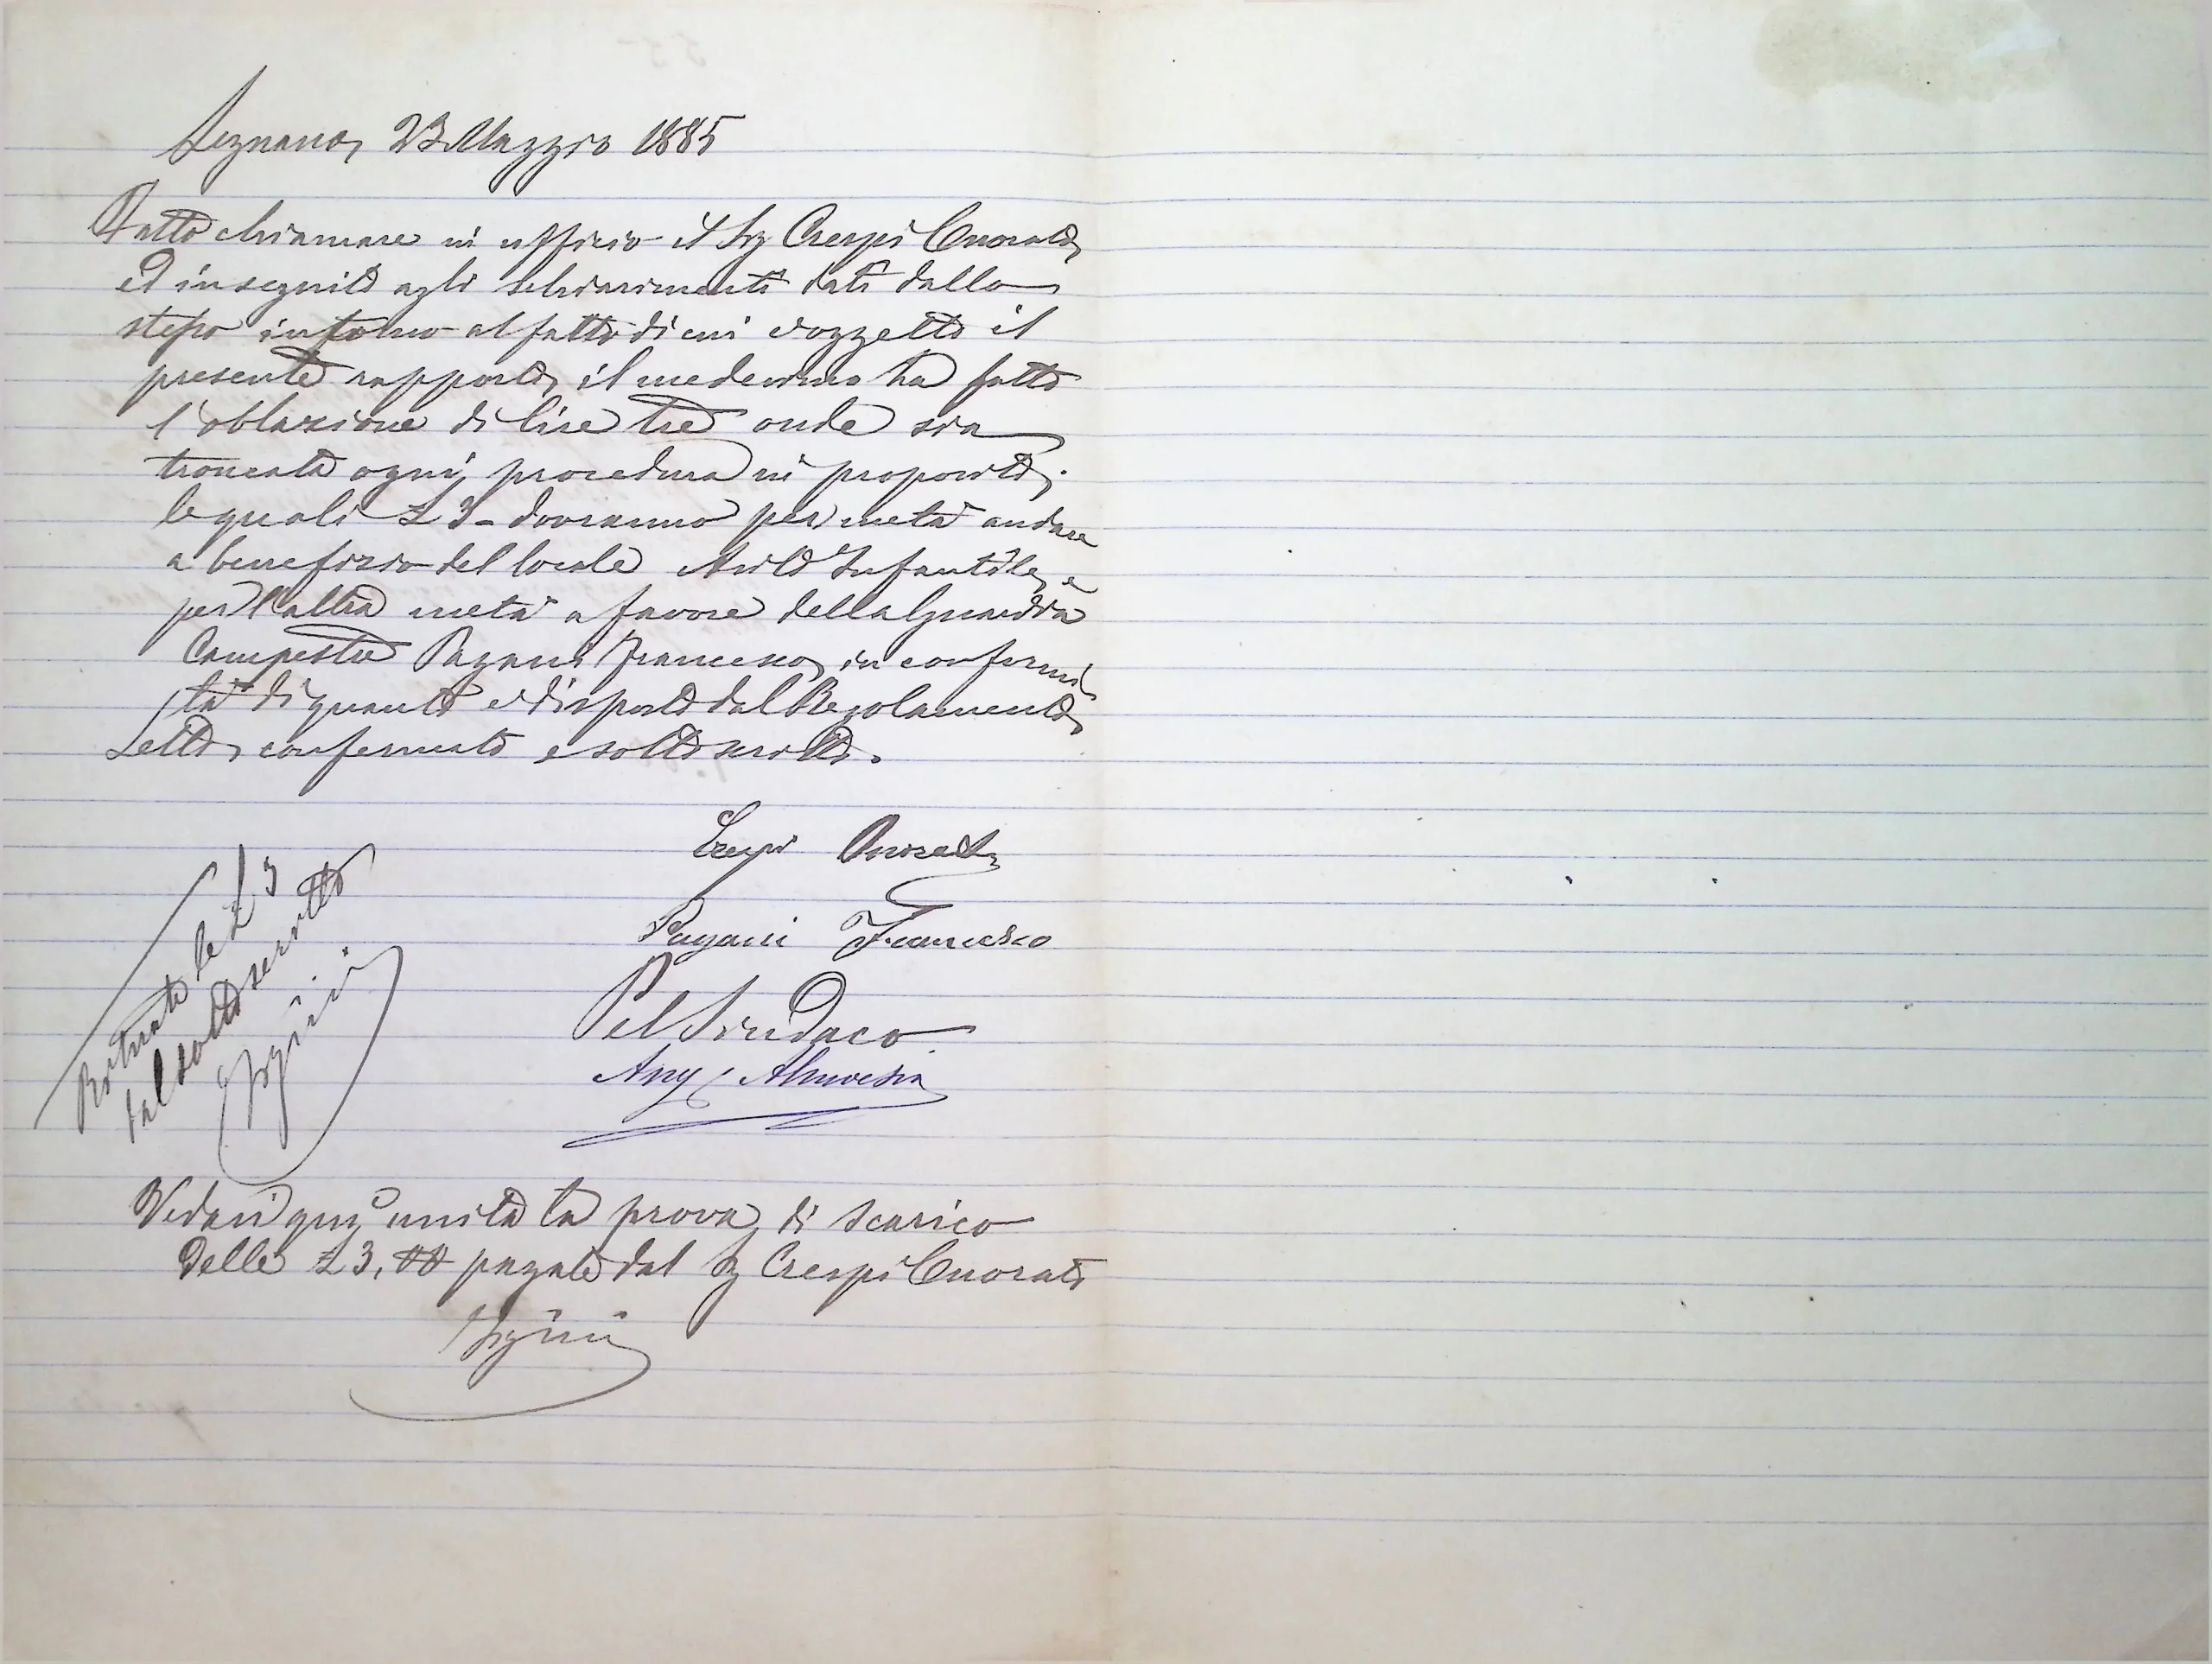 Legnano, 23 Maggio 1885
Fatto chiamare in uffizio il Sig Crespi Onorato,
ed in seguito agli schiarimenti dati dallo
stesso intorno al fatto di cui è oggetto il
presente rapporto, il medesimo ha fatto
l'oblazione di lire tre onde sia
troncata ogni procedura in proposito;
le quali £ 3 - dovranno per metà andare
a benefizio del locale Asilo Infantile, e
per l'altra metà a favore della Guardia
Campestre Pagani Francesco, in conformi
tà di quanto è disposto dal Regolamento,
Letto, confermato e sottoscritto.
Crespi Onorato
Pagani Francesco
Pel Sindaco
Ritirate le £ 3
dal sottoscritto
Vedasi quì unita la prova di scarico
delle £ 3, 00 pagate dal Sig Crespi Onorato